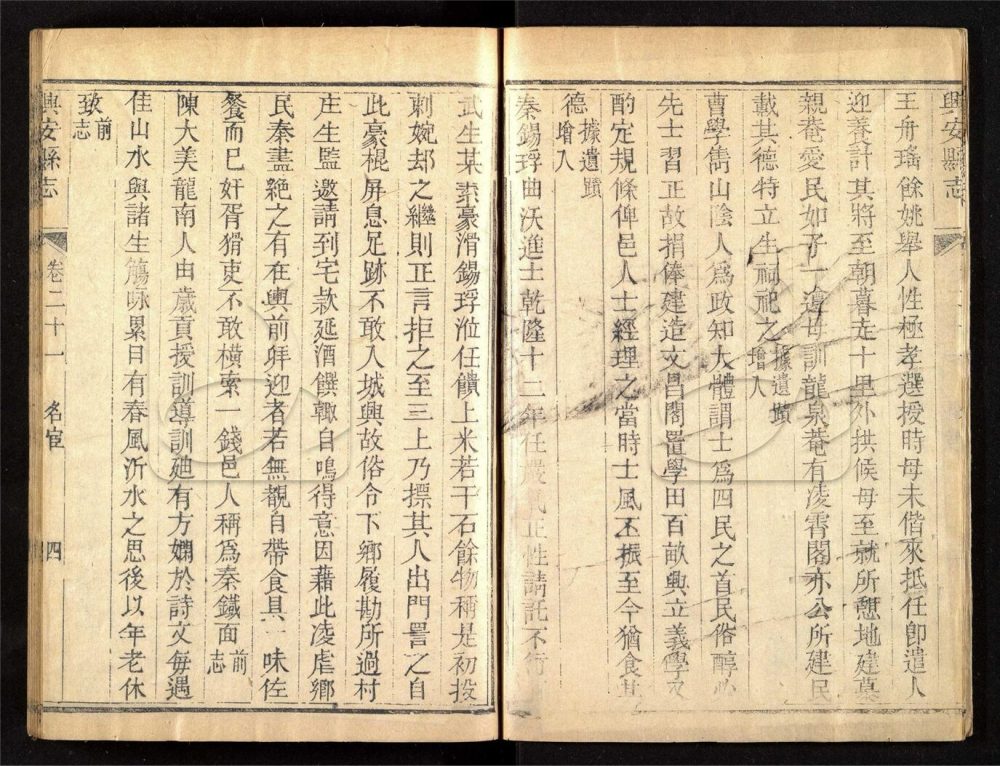 興安縣志
王舟瑤餘姚舉人性極孝選授時母未偕來抵任卽遣人
迎養計其將至朝暮走十里外拱候母至就所憇地建墓
親菴愛民如子一邊世訓龍泉菴有凌霄閣亦公所建民
載其德特立生祠祀之據遺蹟增入
曹學雋山陰人爲政知大體謂士爲四民之首民俗醇必
先士習正故捐俸建造文昌閣置學田百畝興立義學及
酌定規條俾邑人士經理之當時士風丕振至今猶食其
德據遺蹟增入
秦錫琈曲沃進士乾隆十二年任嚴氣正性請託不行
武生某素豪滑錫琈涖任饋上米若干石餘物稱是初投
剌婉却之繼則正言拒之至三上乃摽其人出門詈之自
此豪棍屏息足跡不敢入城興故俗令下鄉履勘所過村
庄生監邀請到宅款延酒饌輙自鳴得意因藉此凌虐鄉
民秦盡絶之有在輿前拜迎者若無覩自帶食具一味佐
餐而已奸胥猾吏不敢橫索一錢邑人稱爲秦鐵面前志
陳大美龍南人由歲貢授訓導訓廸有方嫻於詩文每遇
佳山水與諸生觴咏累日有春風沂水之思後以年老休
致前志
興安縣志
卷二十一
名宦
四